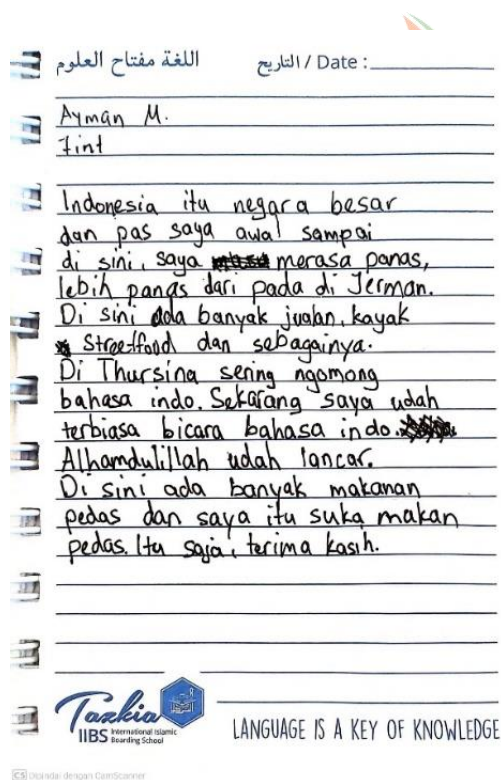 اللغة مفتاح العلوم
التاريخ / Date :
Ayman M.
7int
Indonesia itu negara besar
dan pas saya awal sampai
di sini, saya merasa panas,
lebih panas dari pada di Jerman.
Di sini ada banyak jualan, kayak
Streetfood dan sebagainya.
Di Thursina sering ngomong
bahasa indo. Sekarang saya udah
terbiasa bicara bahasa indo.
Alhamdulillah udah lancar.
Di sini ada banyak makanan
pedas dan saya itu suka makan
pedas. Itu saja, terima kasih.
Tazkia
IIBS International Islamic
Boarding School
LANGUAGE IS A KEY OF KNOWLEDGE
CS Dipindai dengan CamScanner